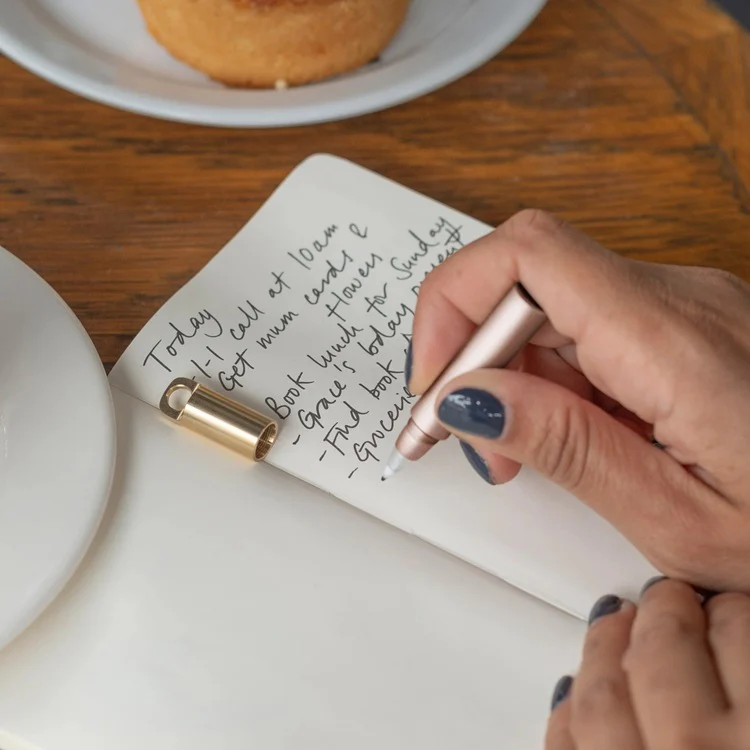 Today
1-1 call at 10am
Get mum cards &
flowers
Book lunch for Sunday
- Grace's bday present
- Find book
- Groceries